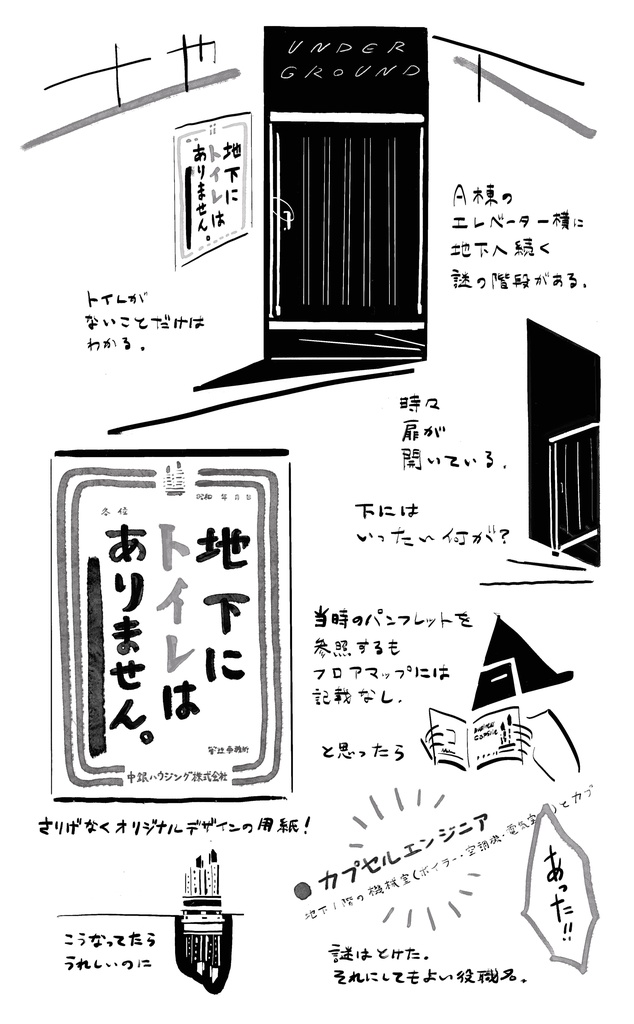 UNDER
GROUND
地下に
トイレは
ありません。
A棟の
エレベーター横に
地下へ続く
謎の階段がある。
トイレが
ないことだけは
わかる。
時々
扉が
開いている。
下には
いったい何が？
昭和 年 月 日
各位
地下に
トイレは
ありません。
管理事務所
中銀ハウジング株式会社
さりげなくオリジナルデザインの用紙！
当時のパンフレットを
参照するも
フロアマップには
記載なし。
と思ったら
●カプセルエンジニア
地下1階の機械室(ボイラー・空調機・電気室 )とカプ
あった!!
こうなってたら
うれしいのに
謎はとけた。
それにしてもよい役職名。